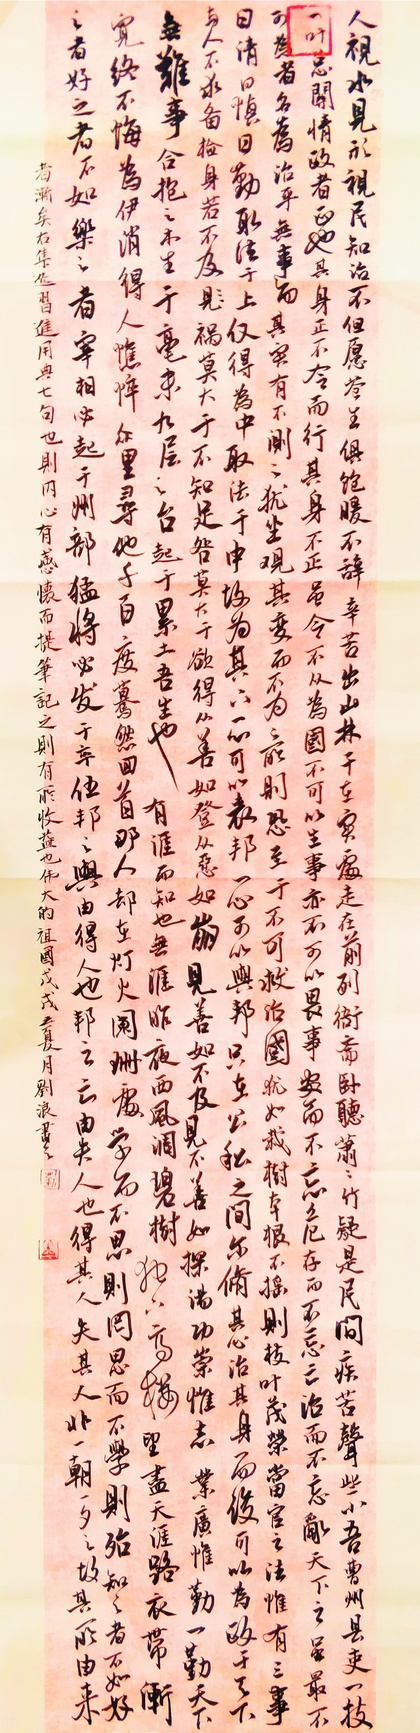 人視水見形視民知治不但愿苍生俱饱暖不辞辛苦出山林干在实處走在前列衙斋卧聽蕭之竹疑是民間疾苦聲些小吾曹州县吏一技
一叶总關情政者正也其身正不令而行其身不正虽令不从為國不可以生事亦不可以畏事安而不忘危存而不忘亡治而不忘亂天下之
可為者名為治平無事而其實有不測之犹坐观其变而不为之所則恐至于不可救治國犹如栽樹本根不摇則枝叶茂榮當官之法惟有三事
曰清曰慎曰勤取法于上仅得為中取法于中故为其下一心可以丧邦一心可以興邦只在公私之间尔脩其心治其身而後可以為政于天下
与人不求备检身若不及禍莫大于不知足咎莫大于欲得从善如登从惡如崩見善如不及見不善如探湯功崇惟志業廣惟勤一勤天下
無難事合抱之木生于毫末九层之台起于累土吾生也有涯而知也無涯昨夜西風凋碧樹独上高楼望盡天涯路衣带漸
寬終不悔為伊消得人憔悴众里尋他千百度驀然回首那人却在灯火阑珊處学而不思則罔思而不學則殆知之者不如好
之者好之者不如樂之者宰相必起于州部猛將必发于卒伍邦之興由得人也邦之亡由失人也得其人失其人非一朝一夕之故其所由来
者漸矣右集也習進用典七句也則内心有感懷而提筆記之則有所收益也伟大的祖國戊戌夏月劉浪書